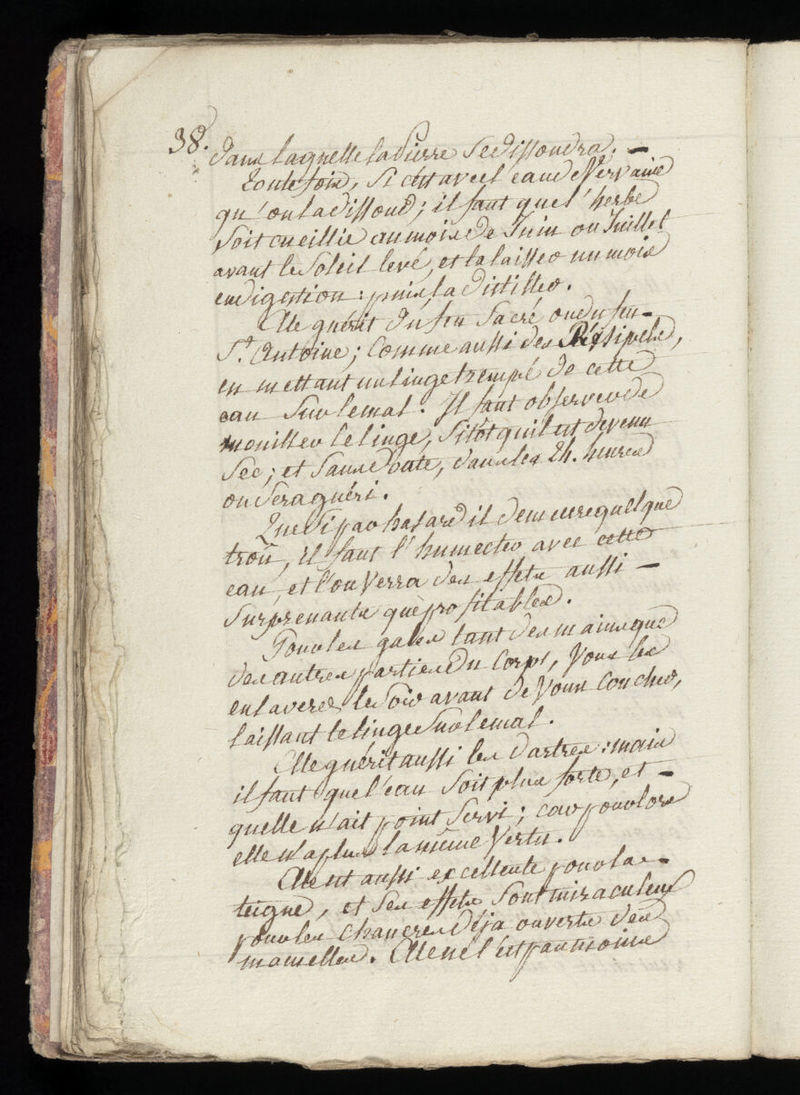 38.
dans laquelle la Pierre se dissoudra. —
Toute fois, si c'est avec l'eau de Vervaine
qu'on la dissoud ; il faut que l'herbe
soit cueillie au mois de Juin ou Juillet
avant le Soleil levé, et la laisser un mois
en digestion : puis la distiller.
Elle guérit du feu Sacré ou du feu —
St. Antoine ; Comme aussi des Résipeles,
en mettant un linge trempé de cette
eau sur le mal. Il faut observer de
mouiller le linge, sitôt qu'il est devenu
sec ; et sans doute, dans les 24. heures
on sera guéri.
Que si par hasard il demeure quelque
trou, il faut l'humecter avec cette
eau, et l'on verra des effets aussi —
surprenants què profitables.
Pour les gales tant des mains que
des autres parties du Corps, vous les
en laverez le soir avant de vous coucher,
laissant le linge sur le mal.
Elle guérit aussi les dartres : mais
il faut que l'eau soit plus forte, et —
quelle n'ait point servi ; car pour lors
elle n'a plus la même vertu.
Elle est aussi excellente pour la —
teigne, et ses effets sont miraculeux
pour les chancres déja ouverts des
mamelles. Elle ne l'est pas moins